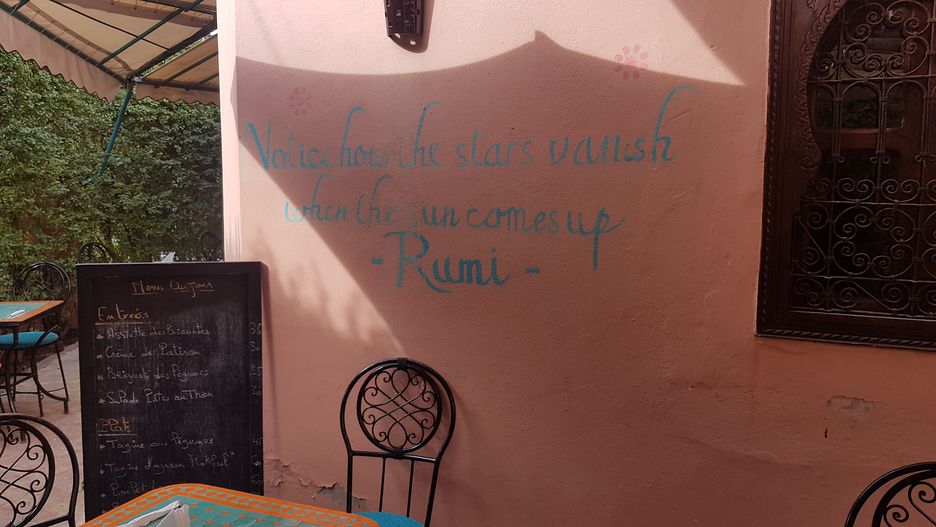 Notice how the stars vanish
when the sun comes up
- Rumi -
Menu Du Jour
Entrées
Assiette de Briouates 35
Crème de Potiron 30
Beignets de légumes 35
Salade Pates au Thon 30
Plats
Tagine aux légumes 45
Tagine d'agneau
Poulet